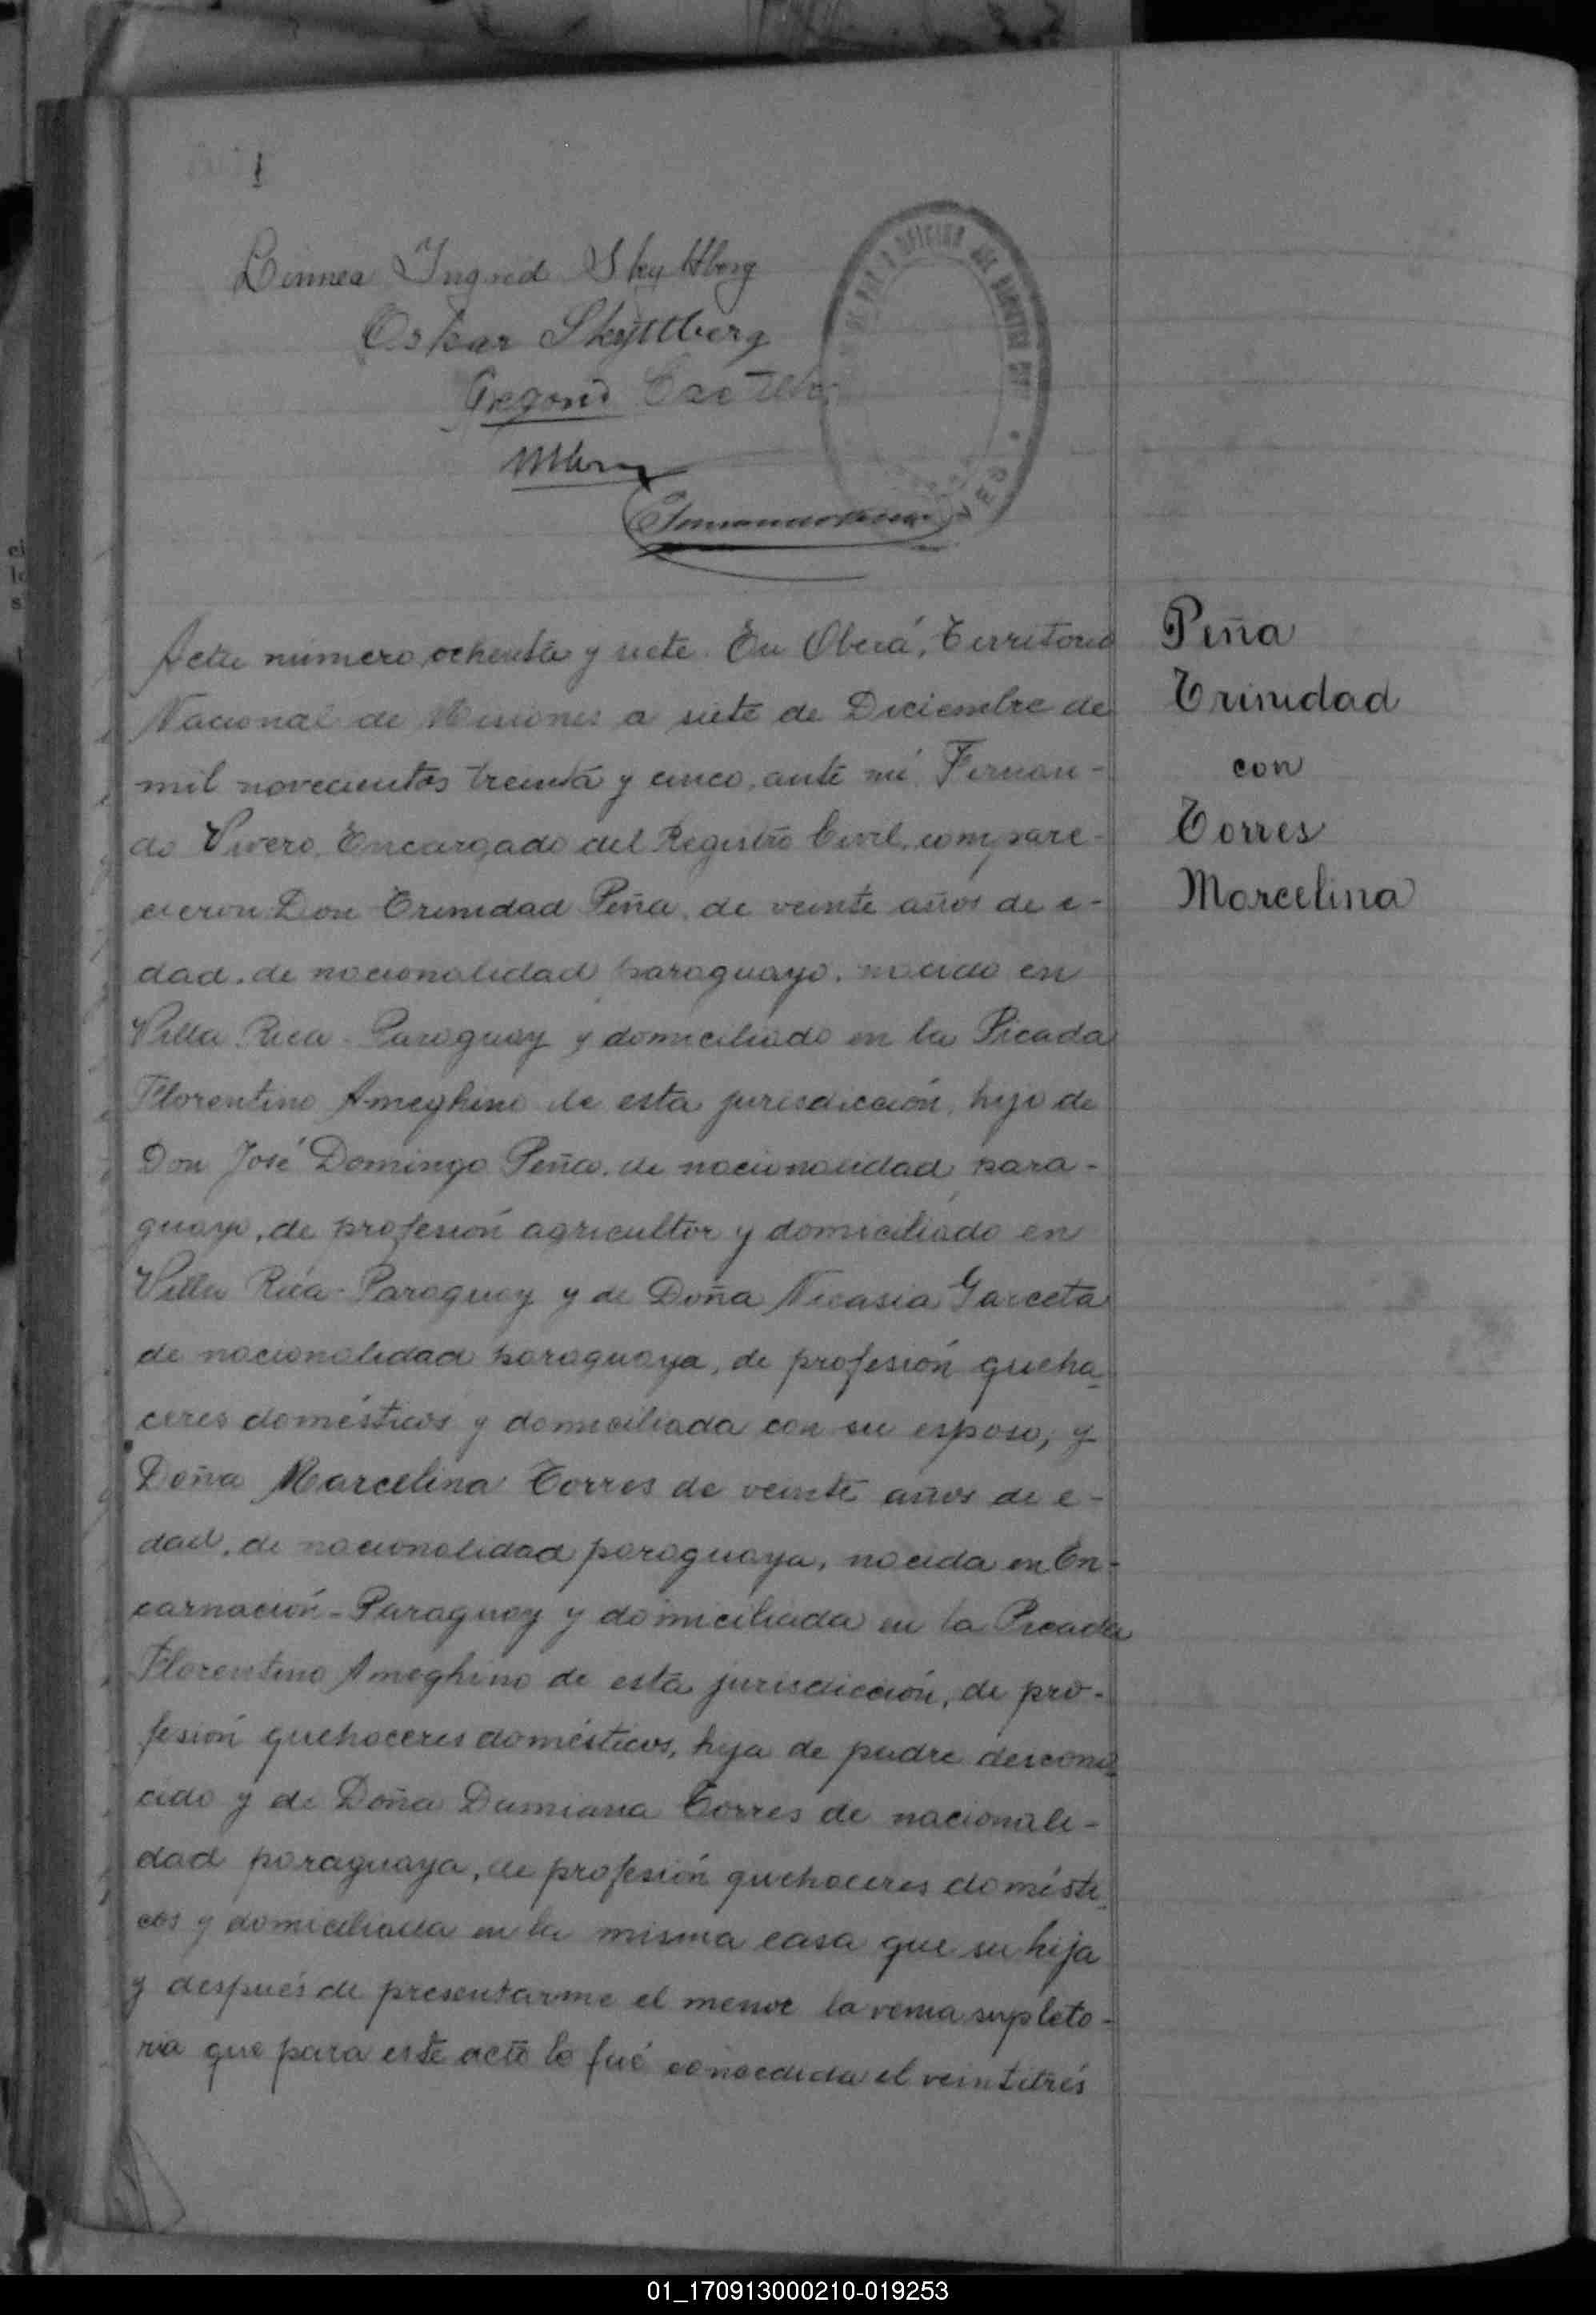 Linnea Ingrid Skyttberg
Oskar Skyttberg
Gregorio
Acta número ochenta y siete. En Oberá, Territorio
Nacional de Misiones a siete de Diciembre de
mil novecientos treinta y cinco, ante mí, Fernan-
do Vivero, Encargado del Registro Civil, compare-
cieron: Don Trinidad Peña, de veinte años de e-
dad, de nacionalidad paraguayo, nacido en
Villa Rica - Paraguay y domiciliado en la Picada
Florentino Ameghino de esta jurisdicción, hijo de
Don José Domingo Peña, de nacionalidad para-
guayo, de profesión agricultor y domiciliado en
Villa Rica - Paraguay y de Doña Nicasia Garceta
de nacionalidad paraguaya, de profesión queha-
ceres domésticos y domiciliada con su esposo; y
Doña Marcelina Torres de veinte años de e-
dad, de nacionalidad paraguaya, nacida en En-
carnación - Paraguay y domiciliada en la Picada
Florentino Ameghino de esta jurisdicción, de pro-
fesión quehaceres domésticos, hija de padre descono-
cido y de Doña Damiana Torres de nacionali-
dad paraguaya, de profesión quehaceres domésti-
cos y domiciliada en la misma casa que su hija
y después de presentarme el menor la venia supleto-
ria que para este acto le fué concedida el veintitrés
Peña
Trinidad
con
Torres
Marcelina
01_170913000210-019253